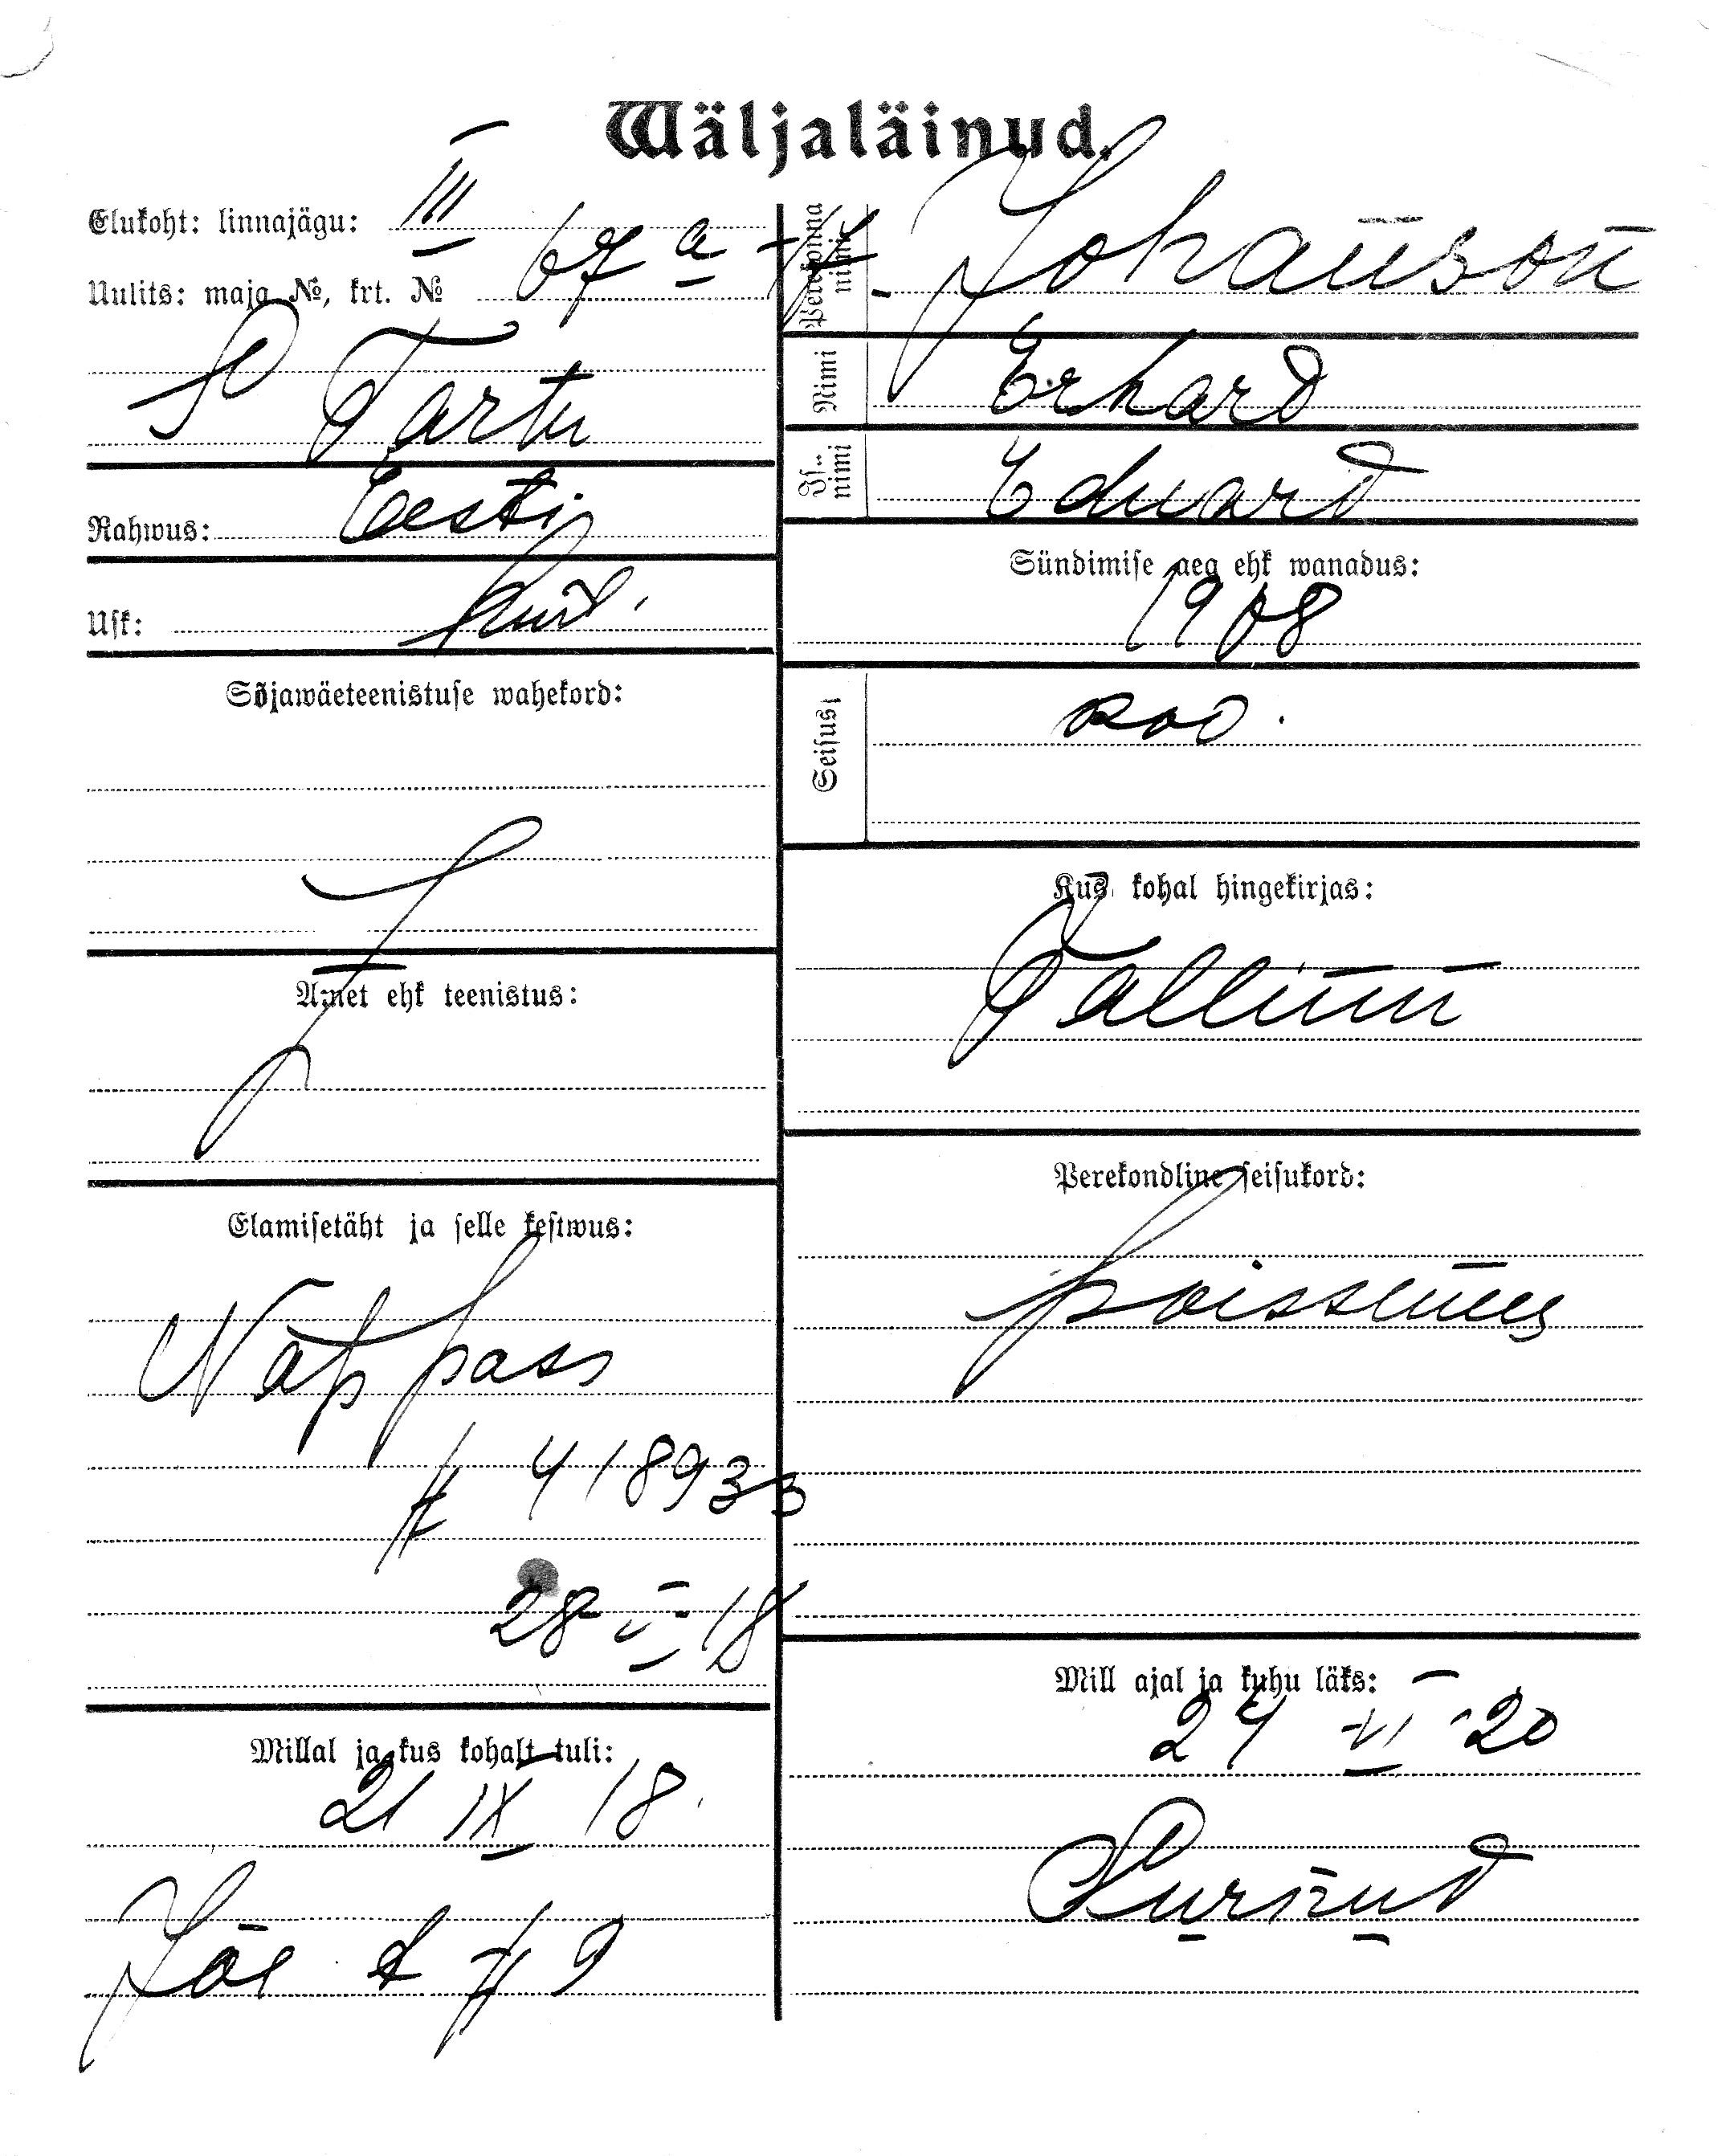 Wäljaläinud.
Elukoht: linnajägu: III
Uulits: maja №, krt. № 67 a -
Tartu
Rahwus: Eesti
Usk: Lut.
Sõjawäeteenistuse wahekord:
Amet ehk teenistus:
Elamisetäht ja selle kestwus:
Nat pass
№ 418933
28 V 18
Millal ja kus kohalt tuli:
21 IX 18.
Jõe t № 9
Perekonna nimi Johanson
Nimi Erhard
Is. nimi Eduard
Sündimise aeg ehk wanadus:
1908
Seisus
Kus kohal hingekirjas:
Tallinn
Perekondline seisukord:
poissmees
Mill ajal ja kuhu läks:
24 VI 20
Surnud